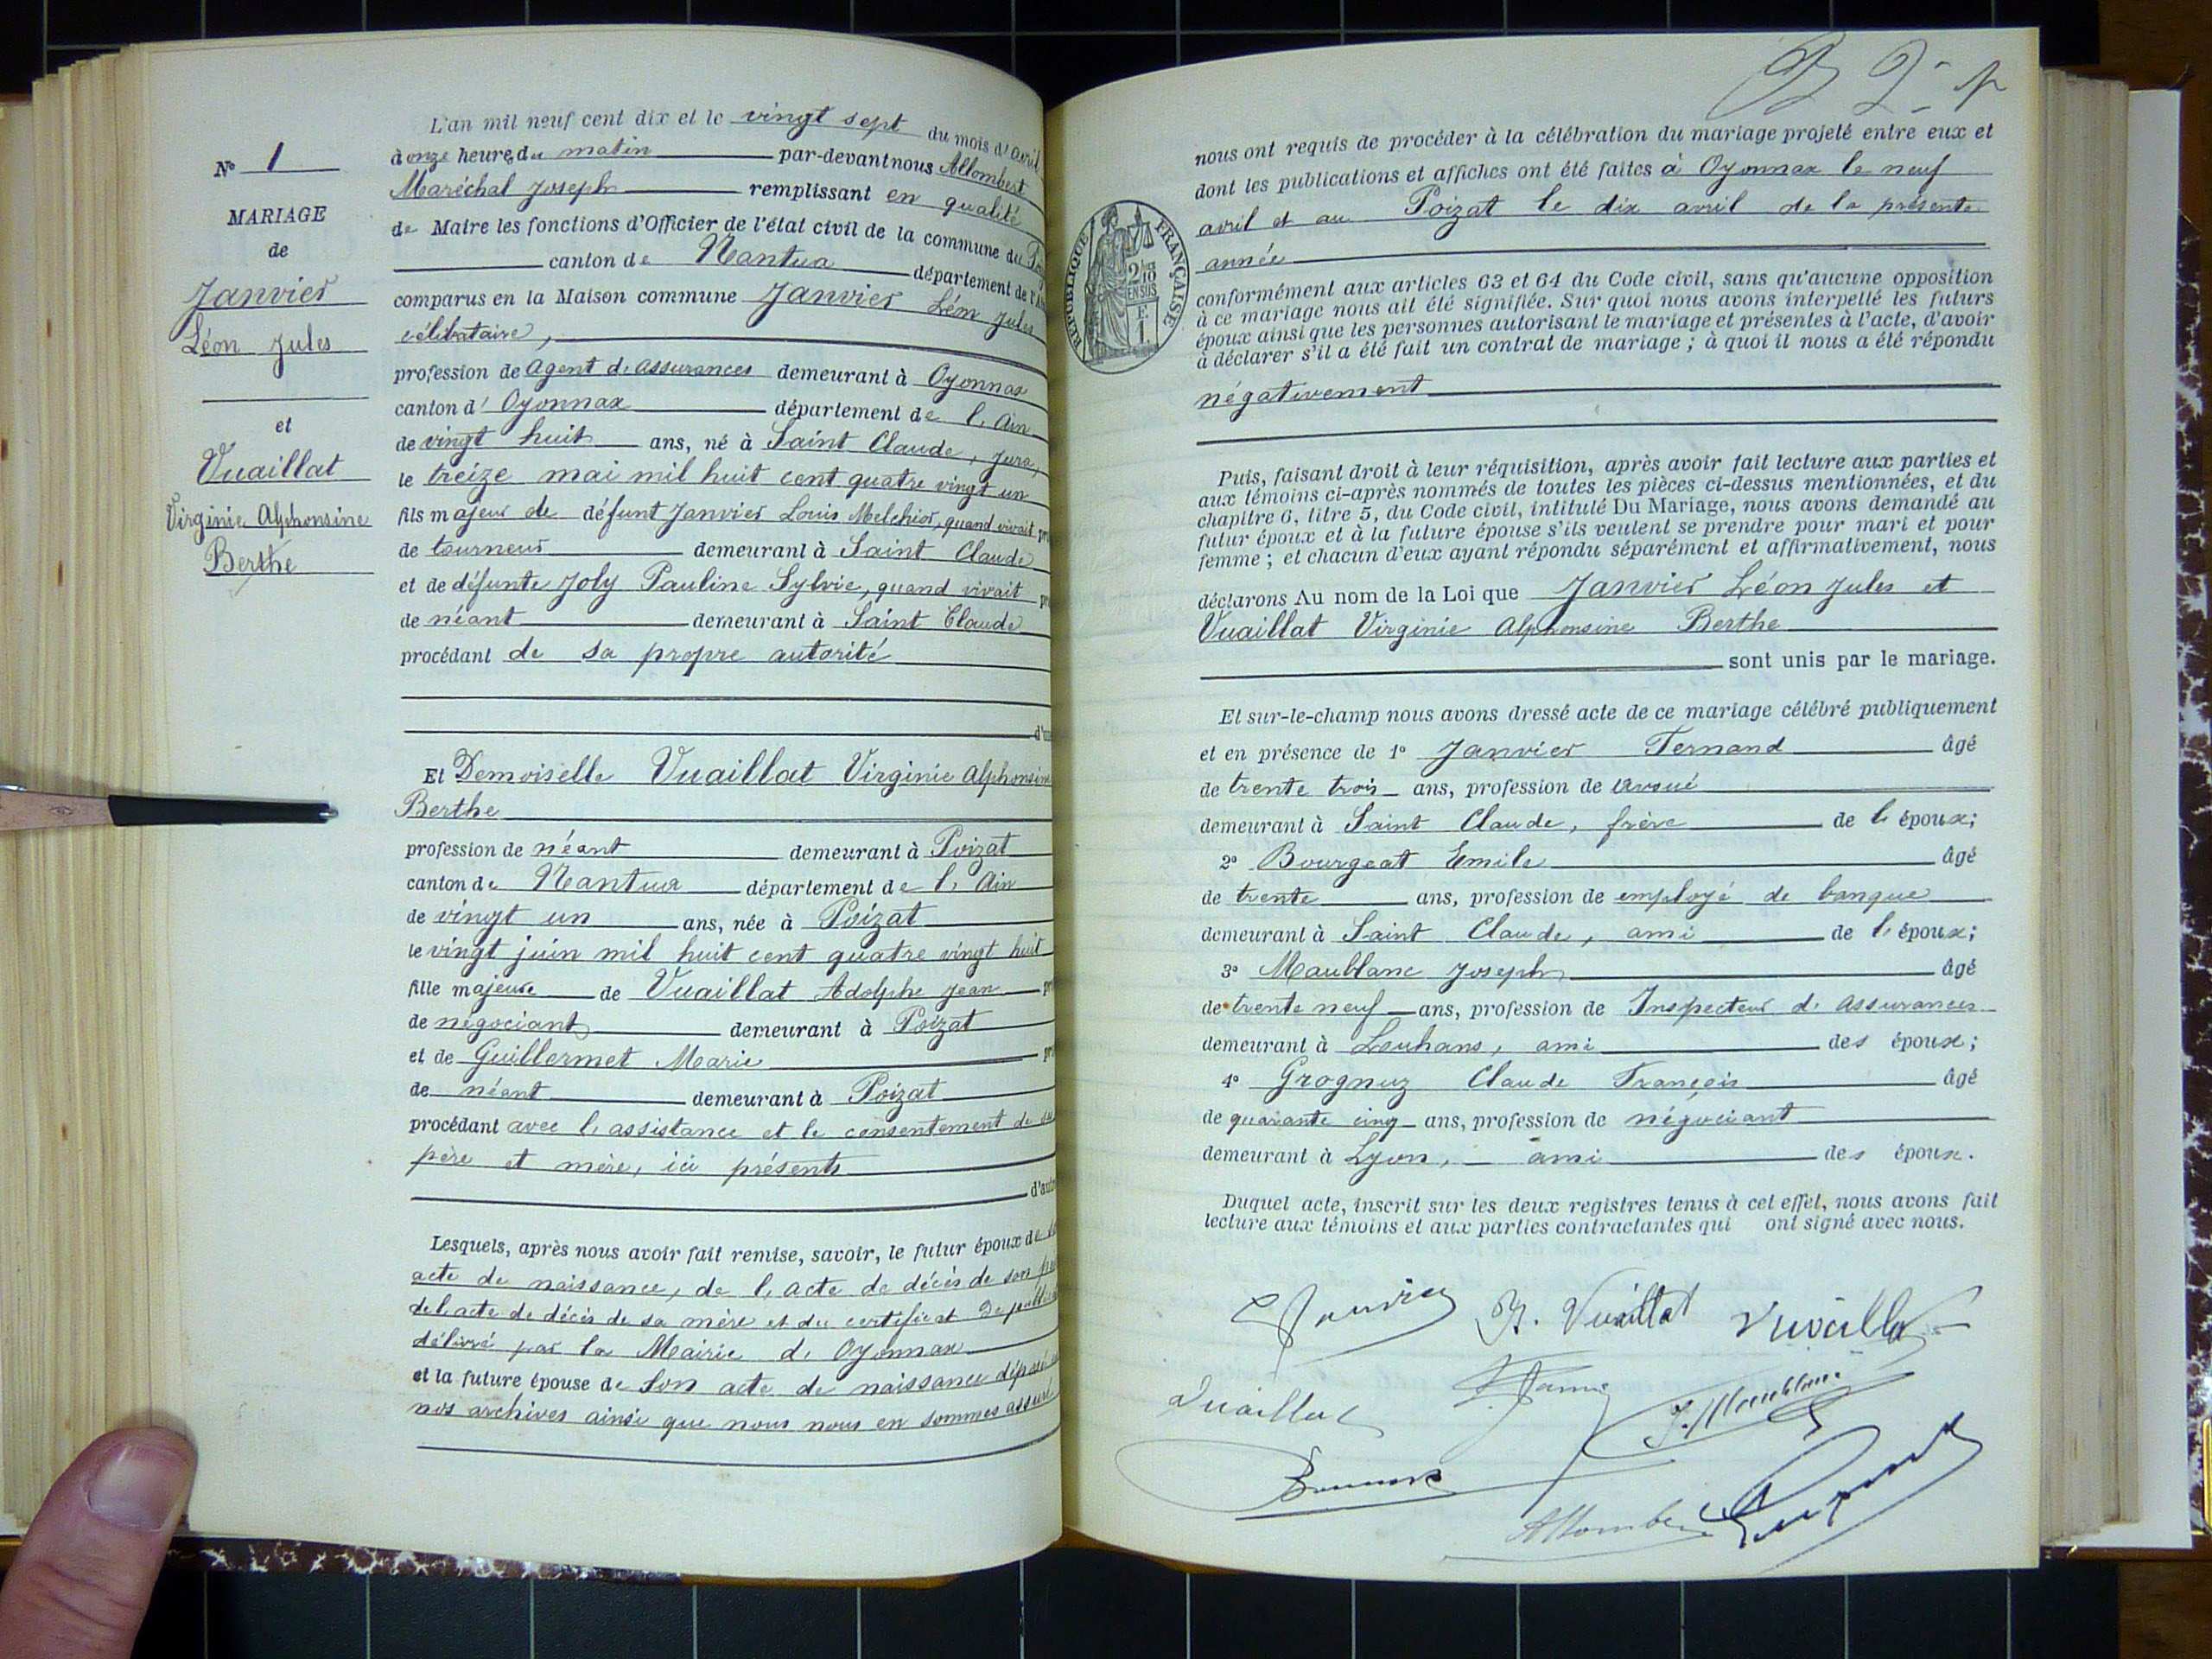 N° 1
MARIAGE
de
Janvier
Léon Jules
et
Vuaillat
Virginie Alphonsine
Berthe
L'an mil neuf cent dix et le vingt sept du mois d'avril
à onze heures du matin par-devant nous Allombert
Maréchal Joseph remplissant en qualité
de Maire les fonctions d'Officier de l'état civil de la commune du
canton de Nantua département de l'
comparus en la Maison commune Janvier Léon Jules
célibataire,
profession de Agent d'assurances demeurant à Oyonnax
canton d' Oyonnax département de l'Ain
de vingt huit ans, né à Saint Claude, Jura,
le treize mai mil huit cent quatre vingt un
fils majeur de défunt Janvier Louis Melchior, quand vivait
de tourneur demeurant à Saint Claude
et de défunte Joly Pauline Sylvie, quand vivait
de néant demeurant à Saint Claude
procédant de sa propre autorité
Et Demoiselle Vuaillat Virginie Alphonsine
Berthe
profession de néant demeurant à Poizat
canton de Nantua département de l'Ain
de vingt un ans, née à Poizat
le vingt juin mil huit cent quatre vingt huit
fille majeure de Vuaillat Adolphe Jean
de négociant demeurant à Poizat
et de Guillermet Marie
de néant demeurant à Poizat
procédant avec l'assistance et le consentement de
père et mère, ici présents
Lesquels, après nous avoir fait remise, savoir, le futur époux de
acte de naissance, de l'acte de décès de son
de l'acte de décès de sa mère et du certificat de
délivré par la Mairie d'Oyonnax
et la future épouse de son acte de naissance déposé
nos archives ainsi que nous nous en sommes assuré
nous ont requis de procéder à la célébration du mariage projeté entre eux et
dont les publications et affiches ont été faites à Oyonnax le neuf
avril et au Poizat le dix avril de la présente
année
RÉPUBLIQUE FRANÇAISE
2/10
EN SUS
conformément aux articles 63 et 64 du Code civil, sans qu'aucune opposition
à ce mariage nous ait été signifiée. Sur quoi nous avons interpellé les futurs
époux ainsi que les personnes autorisant le mariage et présentes à l'acte, d'avoir
à déclarer s'il a été fait un contrat de mariage ; à quoi il nous a été répondu
négativement
Puis, faisant droit à leur réquisition, après avoir fait lecture aux parties et
aux témoins ci-après nommés de toutes les pièces ci-dessus mentionnées, et du
chapitre 6, titre 5, du Code civil, intitulé Du Mariage, nous avons demandé au
futur époux et à la future épouse s'ils veulent se prendre pour mari et pour
femme ; et chacun d'eux ayant répondu séparément et affirmativement, nous
déclarons Au nom de la Loi que Janvier Léon Jules et
Vuaillat Virginie Alphonsine Berthe
sont unis par le mariage.
Et sur-le-champ nous avons dressé acte de ce mariage célébré publiquement
et en présence de 1° Janvier Fernand âgé
de trente trois ans, profession de avoué
demeurant à Saint Claude, frère de l'époux;
2° Bourgeat Emile âgé
de trente ans, profession de employé de banque
demeurant à Saint Claude, ami de l'époux;
3° Maublanc Joseph âgé
de trente neuf ans, profession de Inspecteur d'assurances
demeurant à Louhans, ami des époux;
4° Grognuz Claude François âgé
de quarante cinq ans, profession de négociant
demeurant à Lyon, ami des époux.
Duquel acte, inscrit sur les deux registres tenus à cet effet, nous avons fait
lecture aux témoins et aux parties contractantes qui ont signé avec nous.
Janvier V. Vuaillat Vuaillat
Vuaillat J. Maublanc